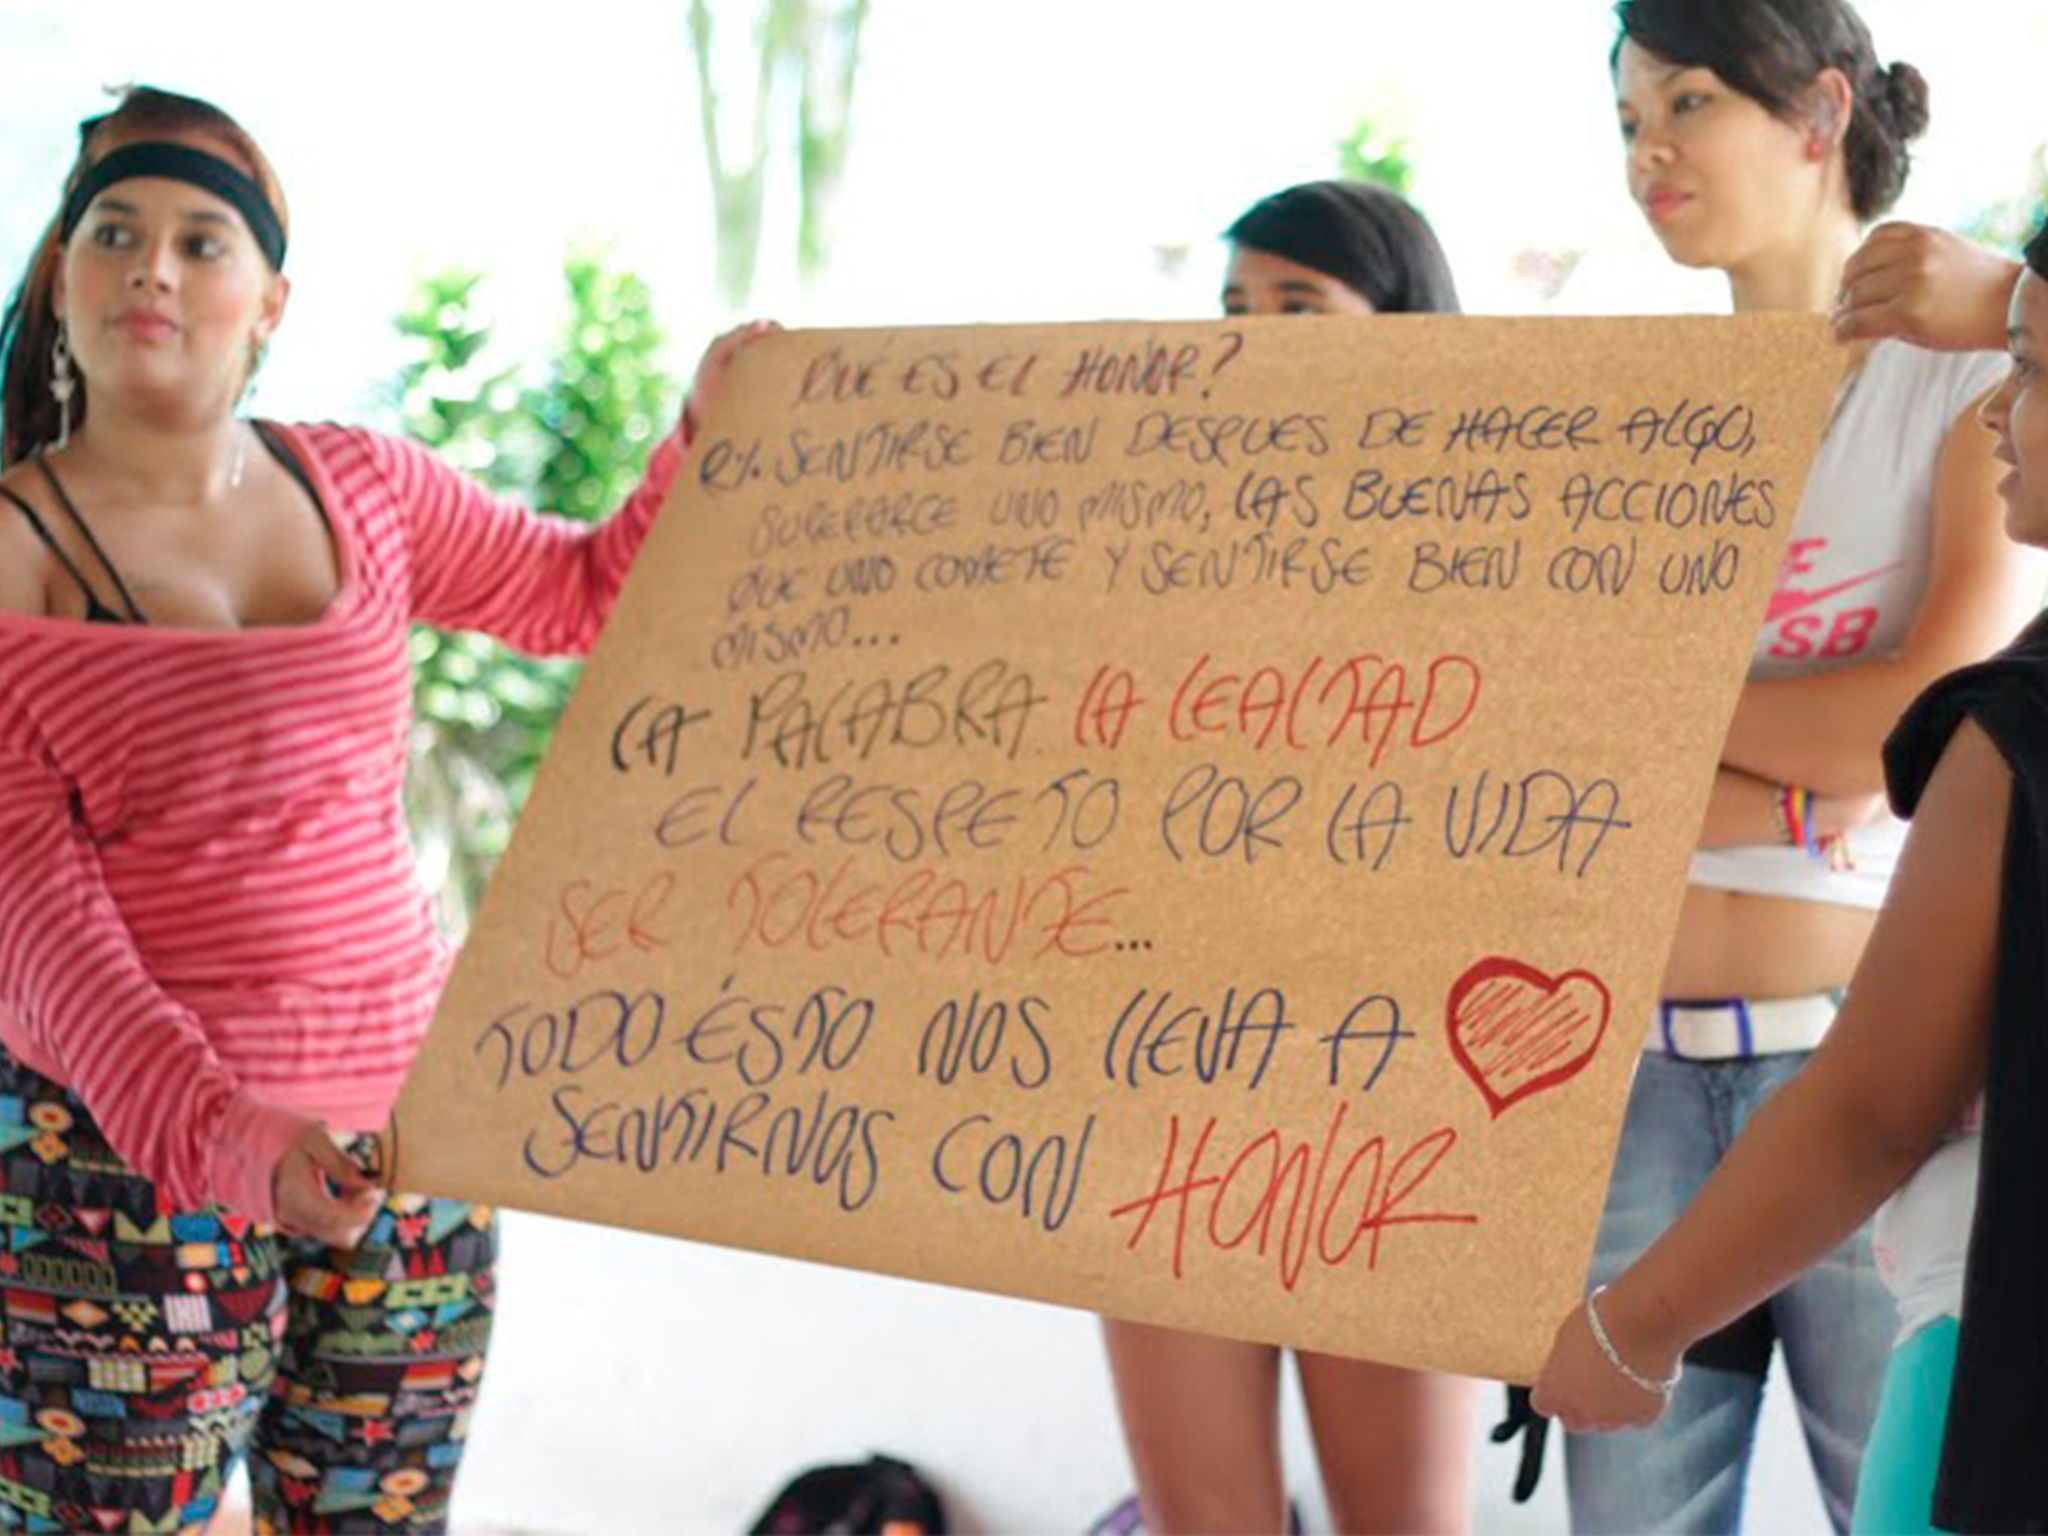 QUÉ ES EL HONOR?
R/. SENTIRSE BIEN DESPUES DE HACER ALGO,
SUPERARCE UNO MISMO, LAS BUENAS ACCIONES
QUE UNO COMETE Y SENTIRSE BIEN CON UNO
MISMO...
LA PALABRA LA LEALTAD
EL RESPETO POR LA VIDA
SER TOLERANTE...
TODO ÉSTO NOS LLEVA A
SENTIRNOS CON HONOR
SB